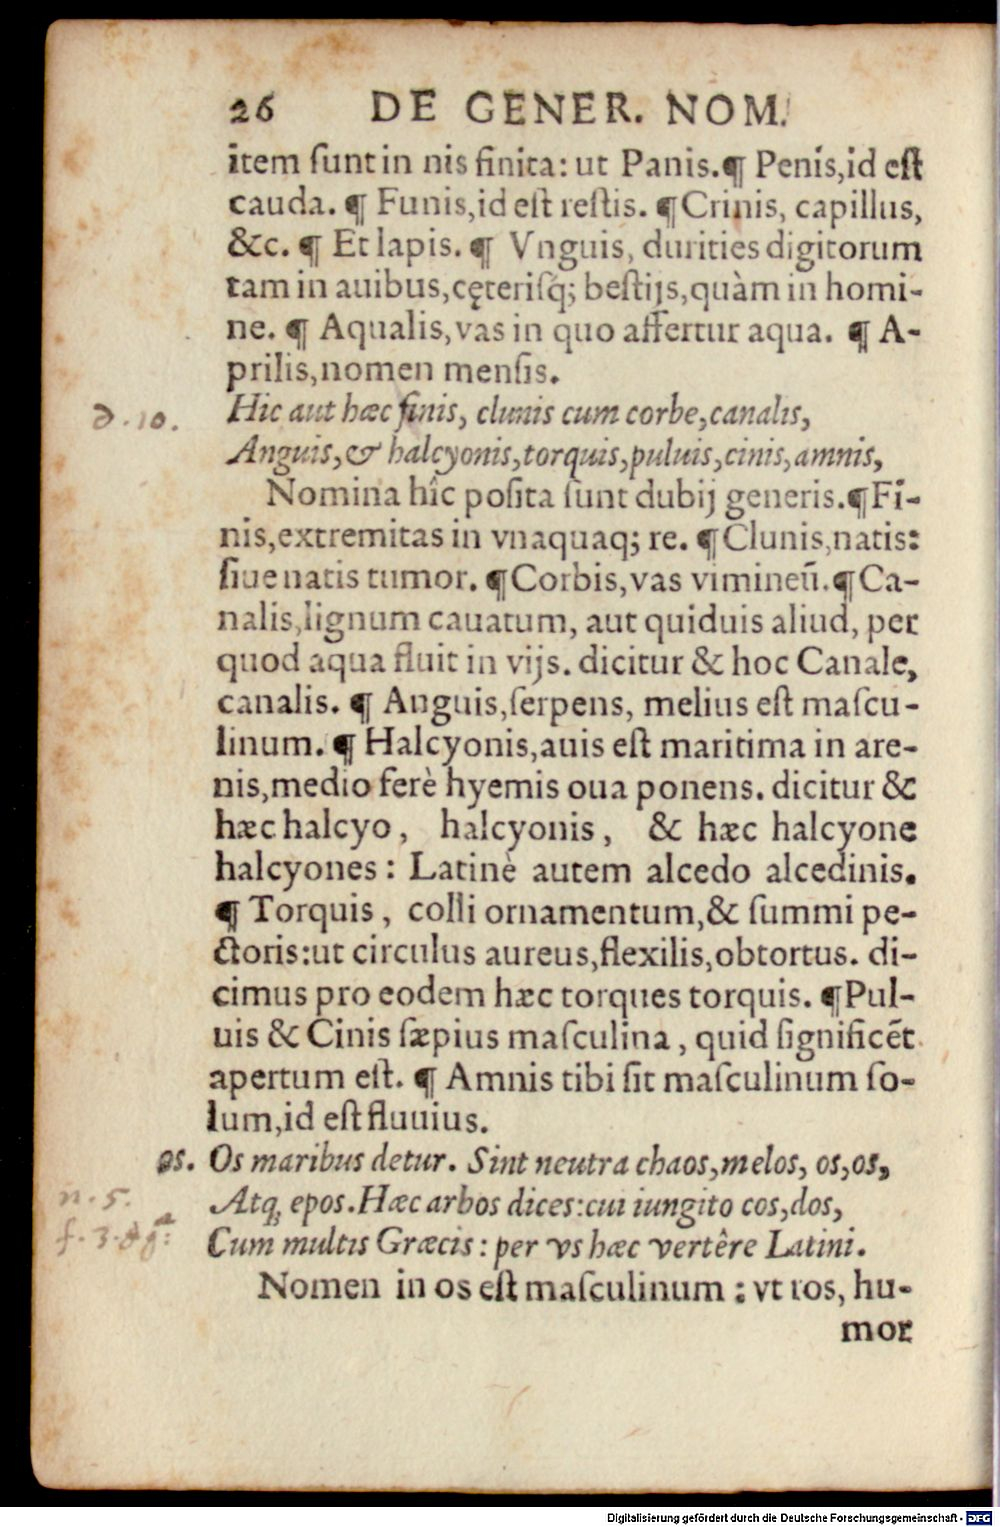 26 DE GENER. NOM.
item ſunt in nis finita: ut Panis.¶ Penis,id eſt
cauda. ¶ Funis,id eſt reſtis. ¶Crinis, capillus,
&c. ¶ Et lapis. ¶ Vnguis, durities digitorum
tam in auibus,cęteriſq́; beſtijs,quàm in homi-
ne. ¶ Aqualis,vas in quo affertur aqua. ¶ A-
prilis,nomen menſis.
d. 10. Hic aut hæc finis, clunis cum corbe,canalis,
Anguis,& halcyonis,torquis,puluis,cinis,amnis,
Nomina hîc poſita ſunt dubij generis.¶Fi-
nis,extremitas in vnaquaq; re. ¶Clunis,natis:
ſiue natis tumor. ¶Corbis,vas vimineũ.¶Ca-
nalis,lignum cauatum, aut quiduis aliud, per
quod aqua fluit in vijs. dicitur & hoc Canale,
canalis. ¶ Anguis,ſerpens, melius eſt maſcu-
linum. ¶ Halcyonis,auis eſt maritima in are-
nis,medio ferè hyemis oua ponens. dicitur &
hæc halcyo, halcyonis, & hæc halcyone
halcyones: Latinè autem alcedo alcedinis.
¶ Torquis, colli ornamentum,& ſummi pe-
ctoris:ut circulus aureus,flexilis,obtortus. di-
cimus pro eodem hæc torques torquis. ¶Pul-
uis & Cinis ſæpius maſculina, quid ſignificẽt
apertum eſt. ¶ Amnis tibi ſit maſculinum ſo-
lum,id eſt fluuius.
os. Os maribus detur. Sint neutra chaos,melos, os,os,
n. 5. Atq; epos.Hæc arbos dices:cui iungito cos,dos,
f. 3. Cum multis Græcis: per vs hæc vertêre Latini.
Nomen in os eſt maſculinum: vt ros, hu-
mor
Digitalisierung gefördert durch die Deutsche Forschungsgemeinschaft - DFG